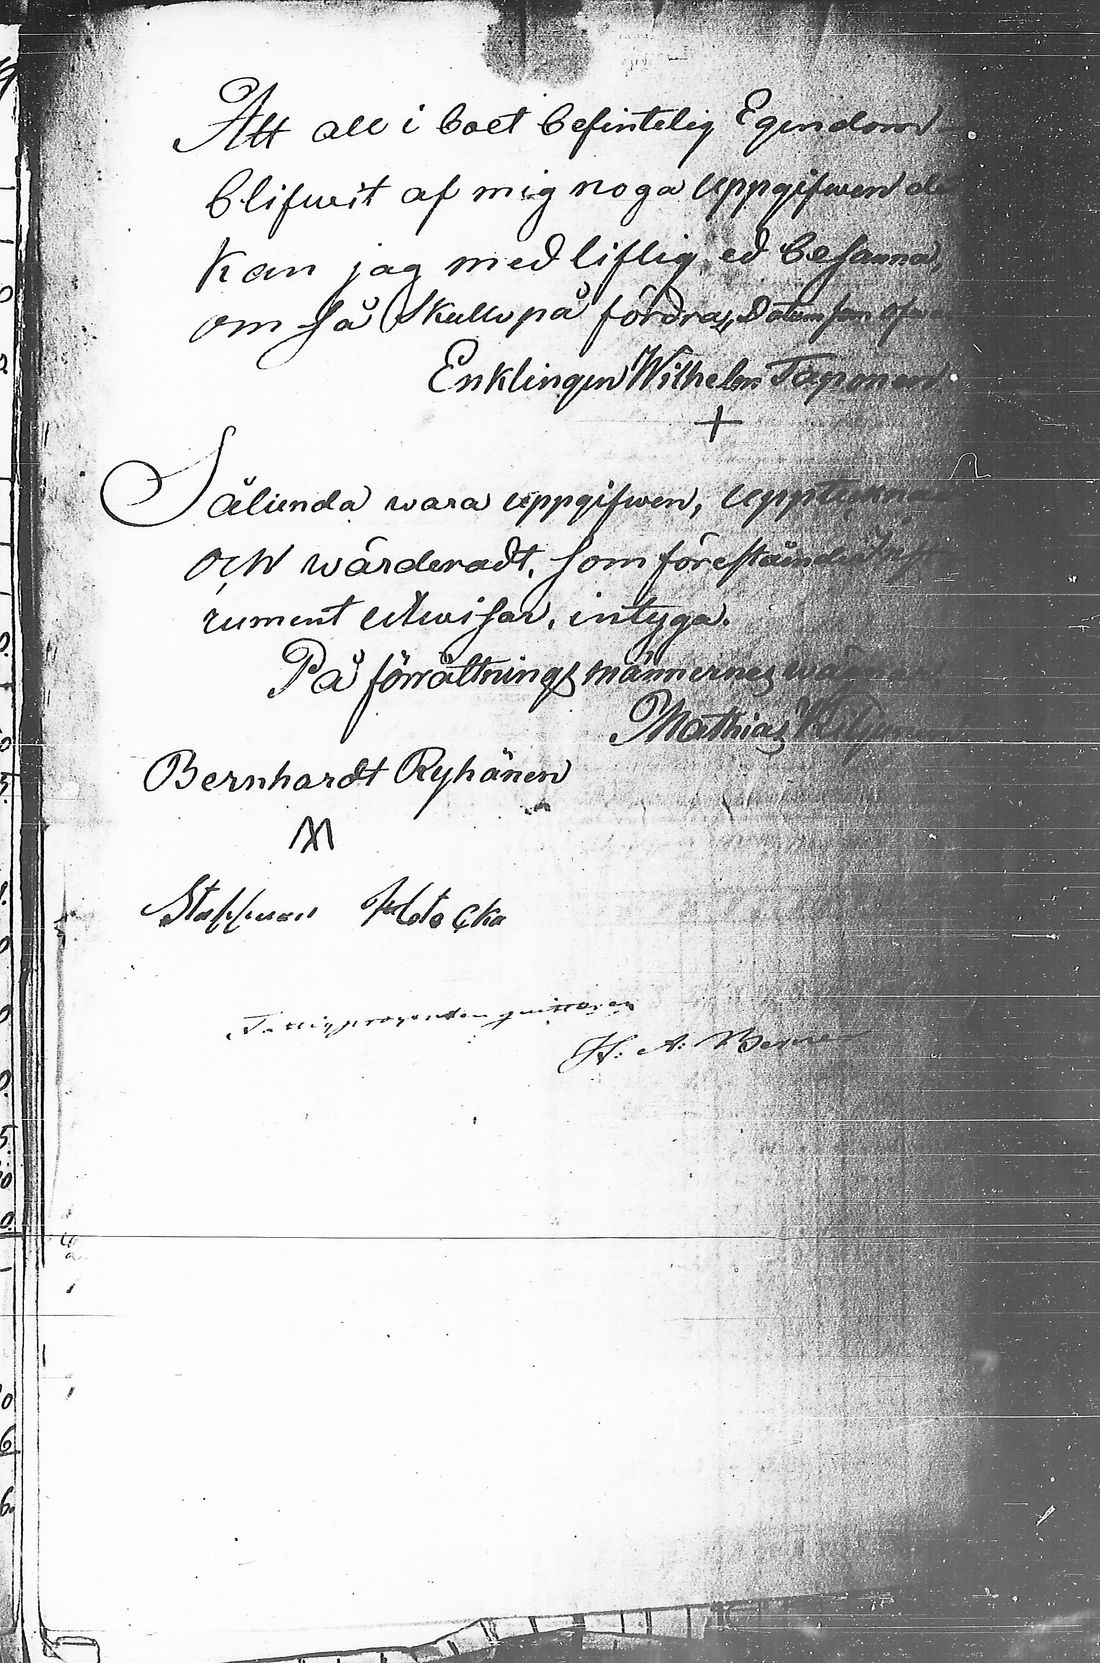 Att all i boet befintelig Egendom
blifwit af mig noga uppgifwen
Kan jag med liflig ed besanna,
om så Skulle på fördra, Datum som ofwan
Enklingen Wilhelm Taponen
+
Sålienda wara uppgifwen, upptecknad
och wärderadt, som föreständer Inst
rument utwisar, intyga.
På förrättnings männernes wägnar
Mathias
Bernhardt Ryhänen
Staffuan
Fattigprosenten quitteras
H. A.